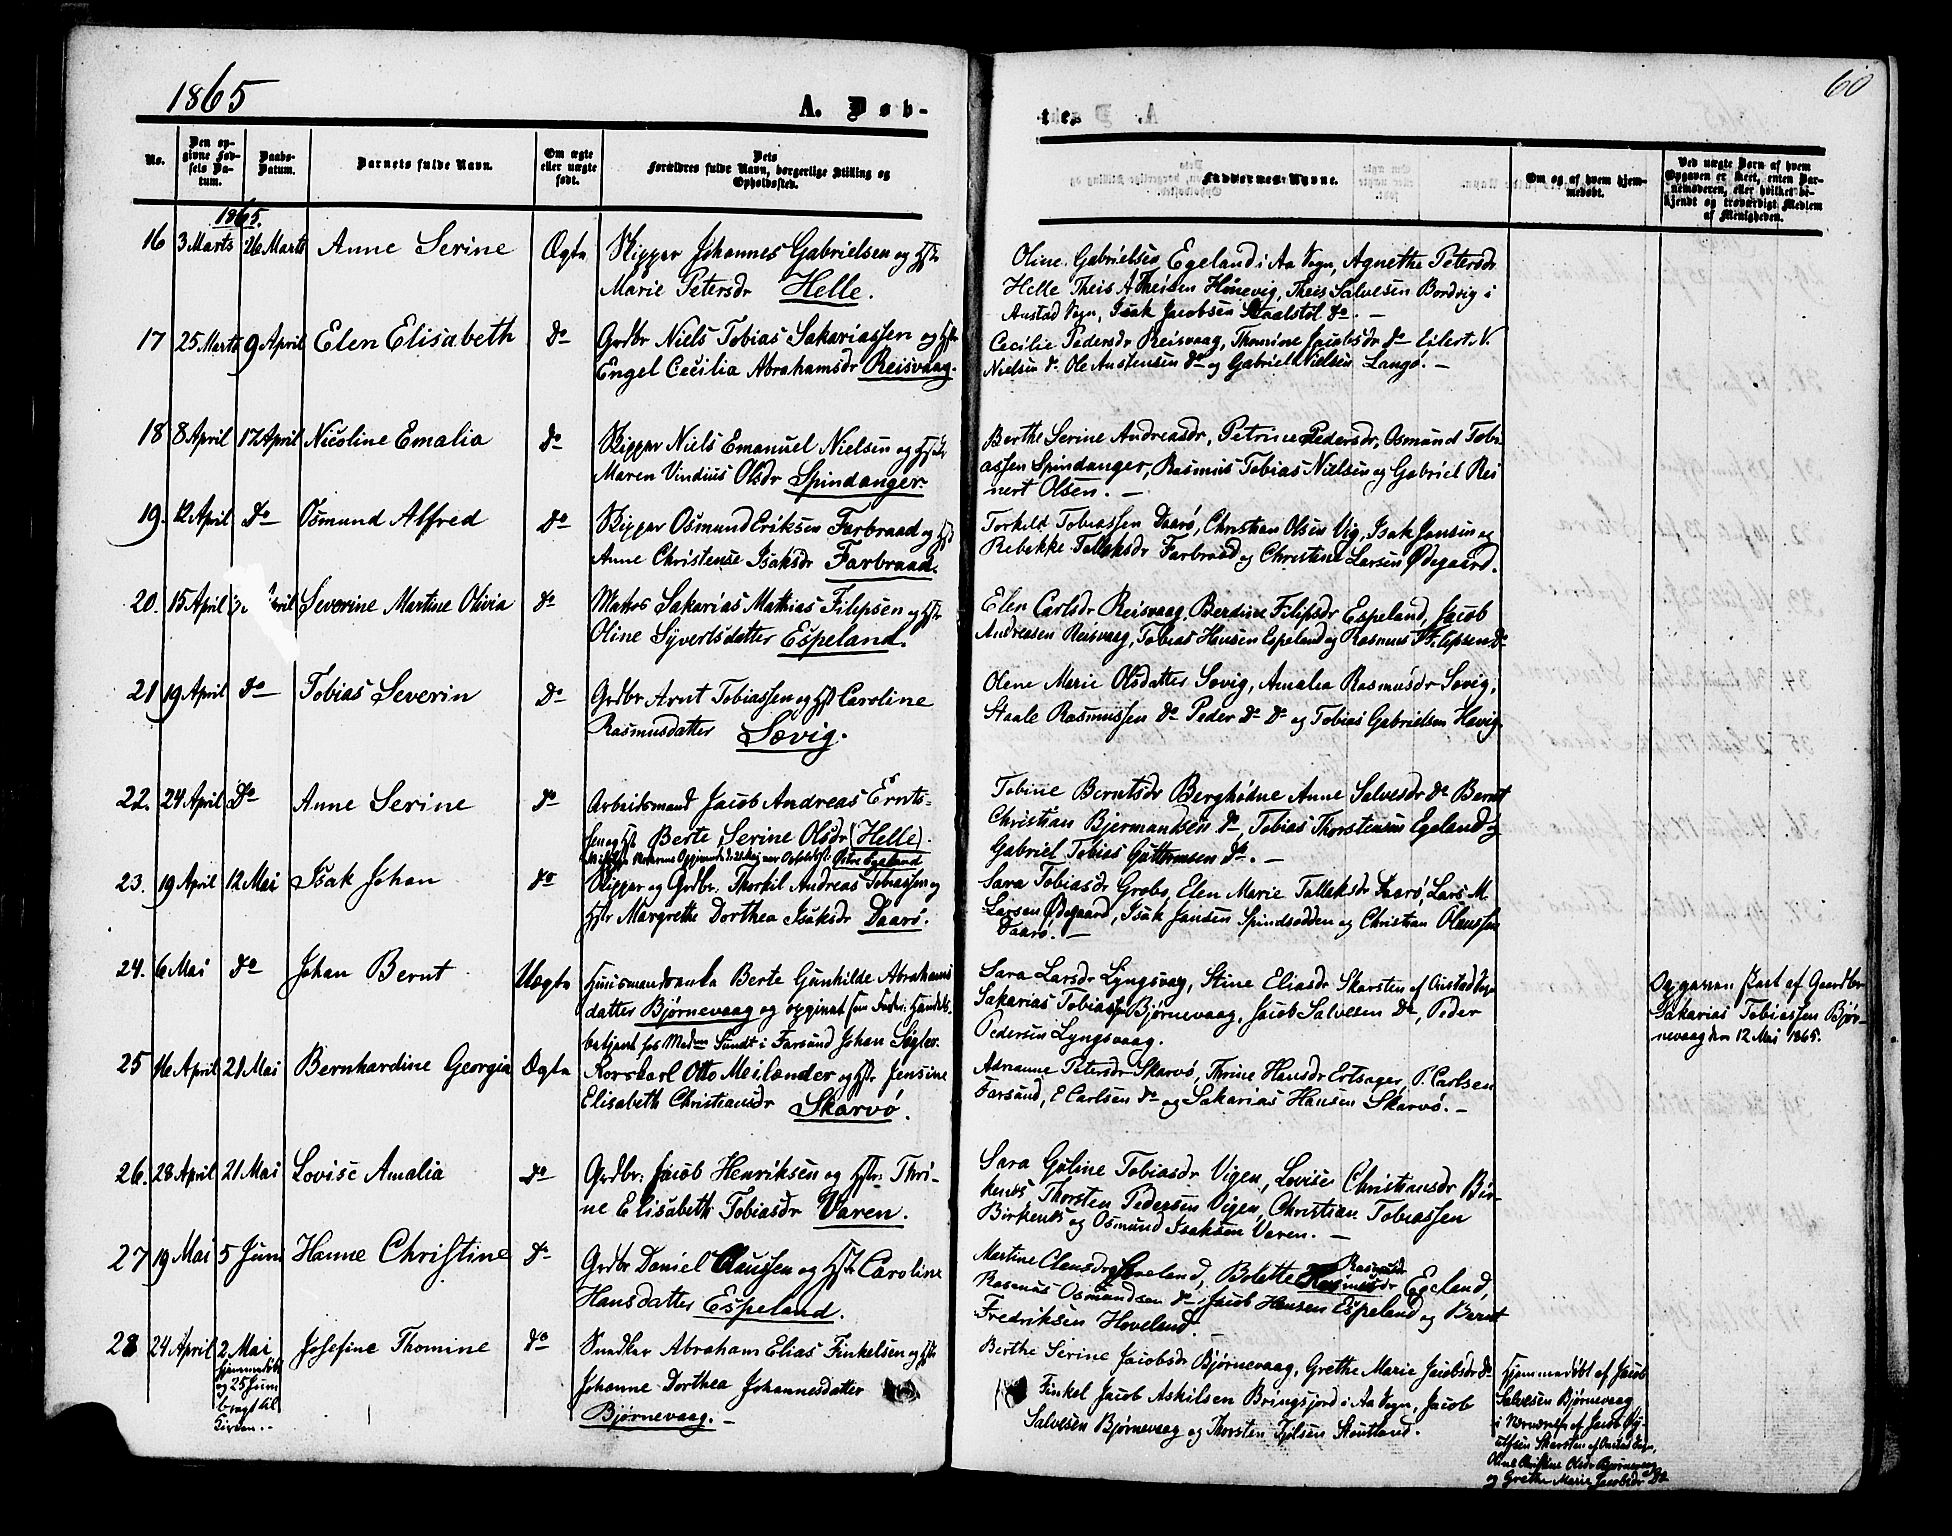 1865
A. Døb-
te.
60
No.
Den op-
givne Fød-
sels Da-
tum.
Daabs-
Datum.
Barnets fulde Navn.
Om ægte
eller uægte
født.
Dets
Forældres fulde Navn, borgerlige Stilling og
Opholdssted.
Faddernes Navne.
Om og af hvem hjem-
medøbt.
Ved uægte Børn af hvem
Opgaven er skeet, enten Bar-
nemoderen, eller hvilket be-
kjendt og troværdigt Medlem
af Menigheden.
1865.
16 3 Marts 26 Marts Anne Serine Ægte Skipper Johannes Gabrielsen og Hstr
Marie Petersdr Helle.
Oline Gabrielsen Egeland i Aa Sogn, Agnethe Petersdr
Helle Theis A Theisen Hunevig, Theis Salvesen Bordvig i
Austad Sogn, Isak Jacobsen Staalstøl do. —
17 25 Marts 9 April Elen Elisabeth do Grdbr Niels Tobias Sakariassen og Hstr
Engel Cecilia Abrahamsdr Reisvaag.
Cecilie Pedersdr Reisvaag, Thomine Jacobsdr do Eilert N.
Nielsen do Ole Austensen do og Gabriel Nielsen Langø. —
18 8 April 17 April Nicoline Emalia do Skipper Niels Emanuel Nielsen og Hstr
Maren Vindius Olsdr Spindanger.
Berthe Serine Andreasdr, Petrine Pedersdr, Osmund Tobi-
assen Spindanger, Rasmus Tobias Nielsen og Gabriel Rei
nert Olsen. —
19. 12 April Do Osmund Alfred do Skipper Osmund Eriksen Farbraad og Hst
Anne Christense Isaksdr Farbraad.
Torkild Tobiassen Daarø, Christian Olsen Vig, Isak Jansen og
Rebekke Tallaksdr Farbraad og Christine Larsen Ødegaard.
20. 15 April Severine Martine Olivia do Matros Sakarias Mathias Filipsen og Hstr
Oline Syvertsdatter Espeland.
Elen Carlsdr Reisvaag, Berdine Filipsdr Espeland, Jacob
Andreasen Reisvaag, Tobias Hansen Espeland og Rasmus Filipsen do
21 19 April do Tobias Severin Do Grdbr Arnt Tobiassen og Hst Caroline
Rasmusdatter Sævig.
Olene Marie Olsdatter Sævig, Amalia Rasmusdr Sævig,
Staale Rasmussen do Peder do do og Tobias Gabrielsen Havig
22. 24 April Do Anne Serine do Arbeidsmand Jacob Andreas Ernts-
sen og Hst Berte Serine Olsdr (Helle).
Tobine Berntsdr Berghøhne Anne Salvesdr do Bernt
Christian Bjermandsen do, Tobias Thorstensen Egeland og
Gabriel Tobias Guttormsen do. —
23. 19 April 12 Mai Isak Johan do Skipper og Grdbr. Thorkil Andreas Tobiassen og
Hstr Margrethe Dorthea Isaksdr Daarø.
Sara Tobiasdr Grobø, Elen Marie Tallaksdr Daarø, Lars M.
Larsen Ødegaard, Isak Jansen Spindsodden og Christian Olaussen
Daarø. —
24. 6 Mai do Johan Bernt Uægte Huusmandsenke Berte Gunhilde Abrahams
datter Bjørnevaag og opgivet som Fader: Handels-
betjent hos Madm Sundt i Farsund Johan Sigler.
Sara Larsdr Lyngsvag, Stine Eliasdr Skarsten af Austad Sogn
Sakarias Tobiassen Bjørnevaag, Jacob Salvesen Do, Peder
Pedersen Lyngsvaag.
Opgaven skeet af Gaardbr
Sakarias Tobiassen Bjør-
nevaag den 12 Mai 1865.
25 16 April 21 Mai Bernhardine Georgia Ægte Korskarl Otto Meilænder og Hstr Jensine
Elisabeth Christiansdr Skarvø.
Adrianne Petersdr Skarvø, Thrine Hansdr Ertsager, P. Carlsen
Farsund, E Carlsen do og Sakarias Hansen Skarvø. —
26. 28 April 21 Mai Lovise Amalia do Grdbr. Jacob Henriksen og Hstr: Thri-
ne Elisabeth Tobiasdr Varen.
Sara Guline Tobiasdr Vigen, Lovise Christiansdr Bir-
kenes, Thorsten Pedersen Vigen, Christian Tobiassen
Birkenes og Osmund Isaksen Varen. —
27 19 Mai 5 Juni Hanne Christine do Grdbr Daniel Claussen og Hstr Caroline
Hansdatter Espeland.
Martine Clausdr Hoveland, Bolette Rasmusdr Egeland,
Rasmus Osmundsen do, Jacob Hansen Espeland og Bernt
Fredriksen Hoveland. —
28 24 April 2 Mai Josefine Thomine do Snedker Abraham Elias Finkelsen og Hstr
hjemmedøbt
og 25 Juni
bragt til
Kirken. —
Johanne Dorthea Johannesdatter
Bjørnevaag. —
Berthe Serine Jacobsdr Bjørnevaag, Grethe Marie Jacobsdr do
Finkel Jacob Askilsen Bringsjord i Aa Sogn, Jacob
Salvesen Bjørnevaag og Thorsten Fjølsen Stoutland.
Hjemmedøbt af Jacob
Salvesen Bjørnevaag
i Nærværelse af Jacob
Skarsten af Austad Sogn,
Oline Christine Olsdr Bjørnevaag
og Grethe Marie Jacobsdr Do